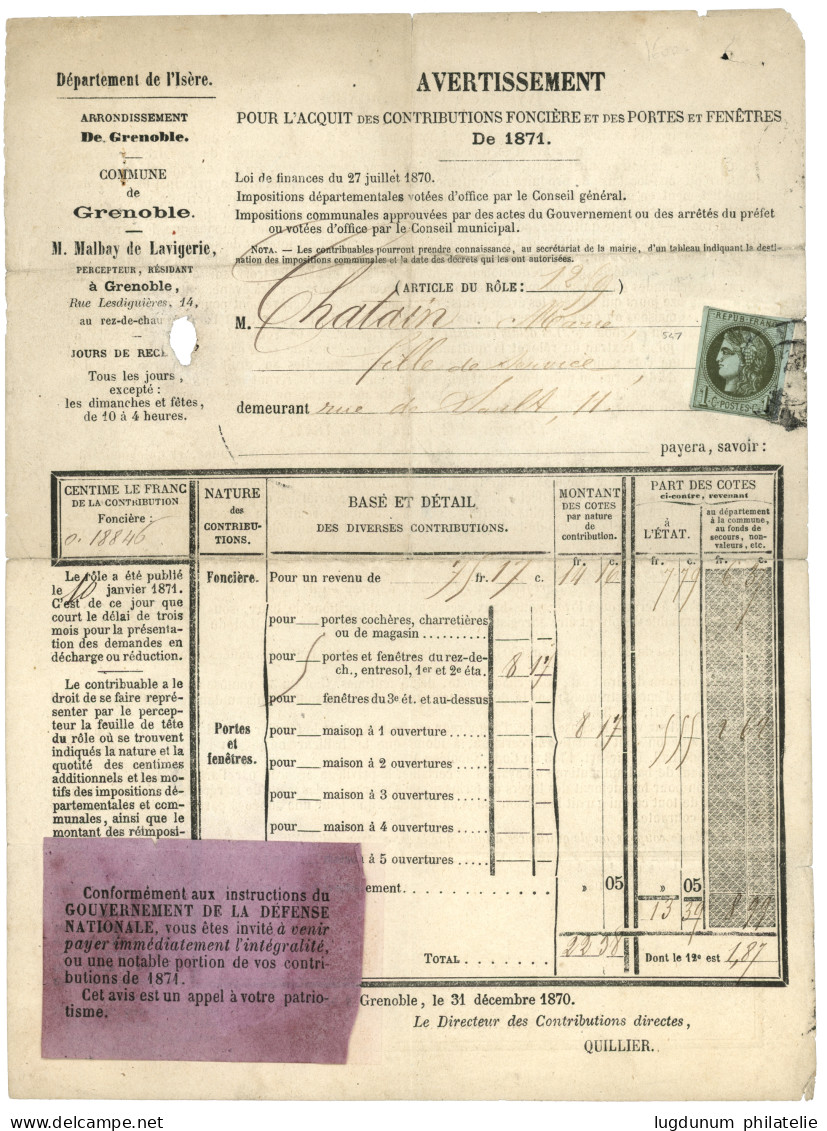 Département de l'Isère.
ARRONDISSEMENT
De Grenoble.
COMMUNE
de
Grenoble.
M. Malbay de Lavigerie,
PERCEPTEUR, RÉSIDANT
à Grenoble,
Rue Lesdiguières, 14,
au rez-de-chau
JOURS DE REC
Tous les jours,
excepté :
les dimanches et fêtes,
de 10 à 4 heures.
AVERTISSEMENT
POUR L'ACQUIT DES CONTRIBUTIONS FONCIÈRE ET DES PORTES ET FENÊTRES
De 1871.
Loi de finances du 27 juillet 1870.
Impositions départementales votées d'office par le Conseil général.
Impositions communales approuvées par des actes du Gouvernement ou des arrêtés du préfet
ou votées d'office par le Conseil municipal.
NOTA. — Les contribuables pourront prendre connaissance, au secrétariat de la mairie, d'un tableau indiquant la desti-
nation des impositions communales et la date des décrets qui les ont autorisées.
(ARTICLE DU RÔLE:
M. Chatain Marie
fille de service
demeurant rue de Sault, 11.
payera, savoir :
REPUB. FRANC
1 C. POSTES
CENTIME LE FRANC
DE LA CONTRIBUTION
Foncière :
0. 18846
Le rôle a été publié
le 10 janvier 1871.
C'est de ce jour que
court le délai de trois
mois pour la présenta-
tion des demandes en
décharge ou réduction.
Le contribuable a le
droit de se faire repré-
senter par le percep-
teur la feuille de tête
du rôle où se trouvent
indiqués la nature et la
quotité des centimes
additionnels et les mo-
tifs des impositions dé-
partementales et com-
munales, ainsi que le
montant des réimposi-
NATURE
des
CONTRIBU-
TIONS.
BASE ET DÉTAIL
DES DIVERSES CONTRIBUTIONS.
MONTANT
DES COTES
par nature
de
contribution.
PART DES COTES
ci-contre, revenant
à
L'ÉTAT.
au département
à la commune,
au fonds de
secours, non-
valeurs, etc.
fr. c. fr. c. fr. c.
Foncière. Pour un revenu de 75 fr. 17 c. 14 16 7 79
pour portes cochères, charretières
ou de magasin
pour portes et fenêtres du rez-de-
ch., entresol, 1er et 2e éta. 8 17
pour fenêtres du 3e ét. et au-dessus
Portes
et
fenêtres.
pour maison à 1 ouverture 8 17 5 55 2 62
pour maison à 2 ouvertures
pour maison à 3 ouvertures
pour maison à 4 ouvertures
à 5 ouvertures
ement » 05 » 05
13 39 8 99
TOTAL 22 38 Dont le 12e est 1,87
Conformément aux instructions du
GOUVERNEMENT DE LA DÉFENSE
NATIONALE, vous êtes invité à venir
payer immédiatement l'intégralité,
ou une notable portion de vos contri-
butions de 1871.
Cet avis est un appel à votre patrio-
tisme.
Grenoble, le 31 décembre 1870.
Le Directeur des Contributions directes,
QUILLIER.
lugdunum philatelie